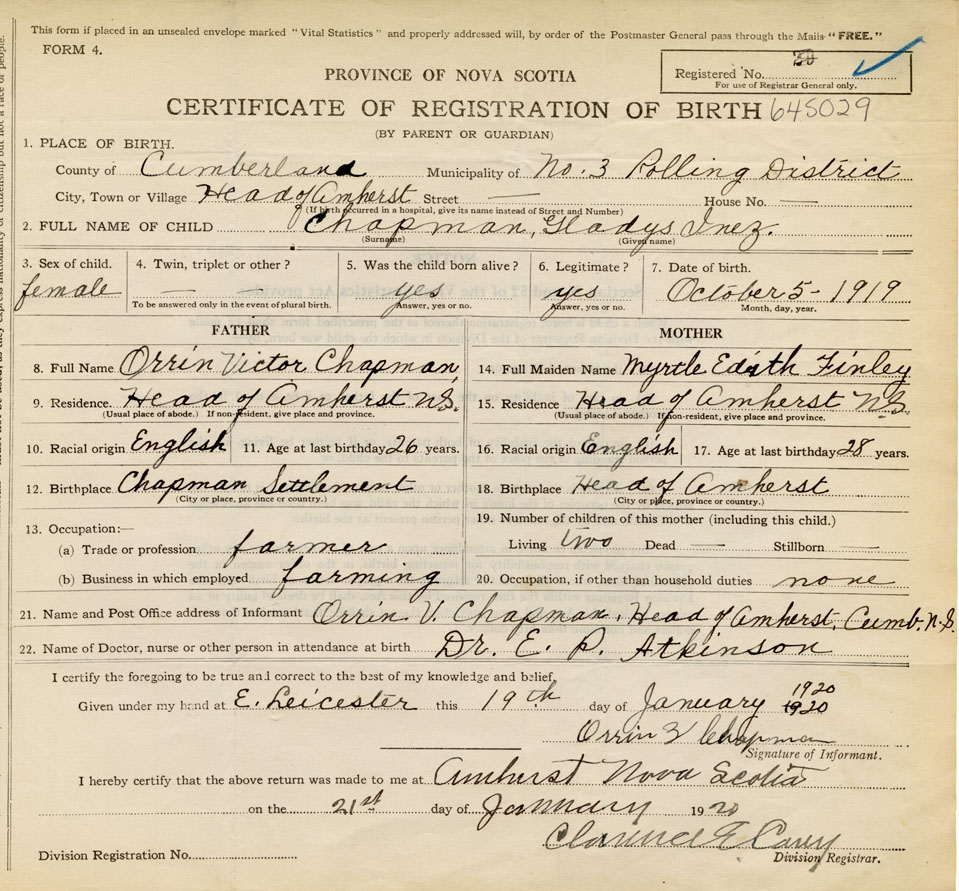 This form if placed in an unsealed envelope marked "Vital Statistics" and properly addressed will, by order of the Postmaster General pass through the Mails "FREE."
FORM 4.
Registered No.
For use of Registrar General only.
PROVINCE OF NOVA SCOTIA
CERTIFICATE OF REGISTRATION OF BIRTH 645029
(BY PARENT OR GUARDIAN)
1. PLACE OF BIRTH.
County of Cumberland Municipality of No. 3 Polling District
City, Town or Village Head of Amherst Street — House No. —
(If birth occurred in a hospital, give its name instead of Street and Number)
2. FULL NAME OF CHILD Chapman, Gladys Inez.
(Surname) (Given name)
3. Sex of child. 4. Twin, triplet or other? 5. Was the child born alive? 6. Legitimate? 7. Date of birth.
female — yes yes October 5 - 1919
To be answered only in the event of plural birth. Answer, yes or no. Answer, yes or no. Month, day, year.
FATHER
8. Full Name Orrin Victor Chapman
9. Residence. Head of Amherst N.S.
(Usual place of abode.) If non-resident, give place and province.
10. Racial origin English 11. Age at last birthday 26 years.
12. Birthplace Chapman Settlement
(City or place, province or country.)
13. Occupation:—
(a) Trade or profession farmer
(b) Business in which employed farming
MOTHER
14. Full Maiden Name Myrtle Edith Finley
15. Residence Head of Amherst N.S.
(Usual place of abode.) If non-resident, give place and province.
16. Racial origin English 17. Age at last birthday 28 years.
18. Birthplace Head of Amherst
(City or place, province or country.)
19. Number of children of this mother (including this child.)
Living two Dead — Stillborn —
20. Occupation, if other than household duties none
21. Name and Post Office address of Informant Orrin V. Chapman, Head of Amherst, Cumb. N.S.
22. Name of Doctor, nurse or other person in attendance at birth Dr. E. P. Atkinson
I certify the foregoing to be true and correct to the best of my knowledge and belief,
1920
Given under my hand at E. Leicester this 19th day of January 1920
Orrin V Chapman
Signature of Informant.
I hereby certify that the above return was made to me at Amherst Nova Scotia
on the 21st day of January 1920
Clarence E Carey
Division Registration No. Division Registrar.